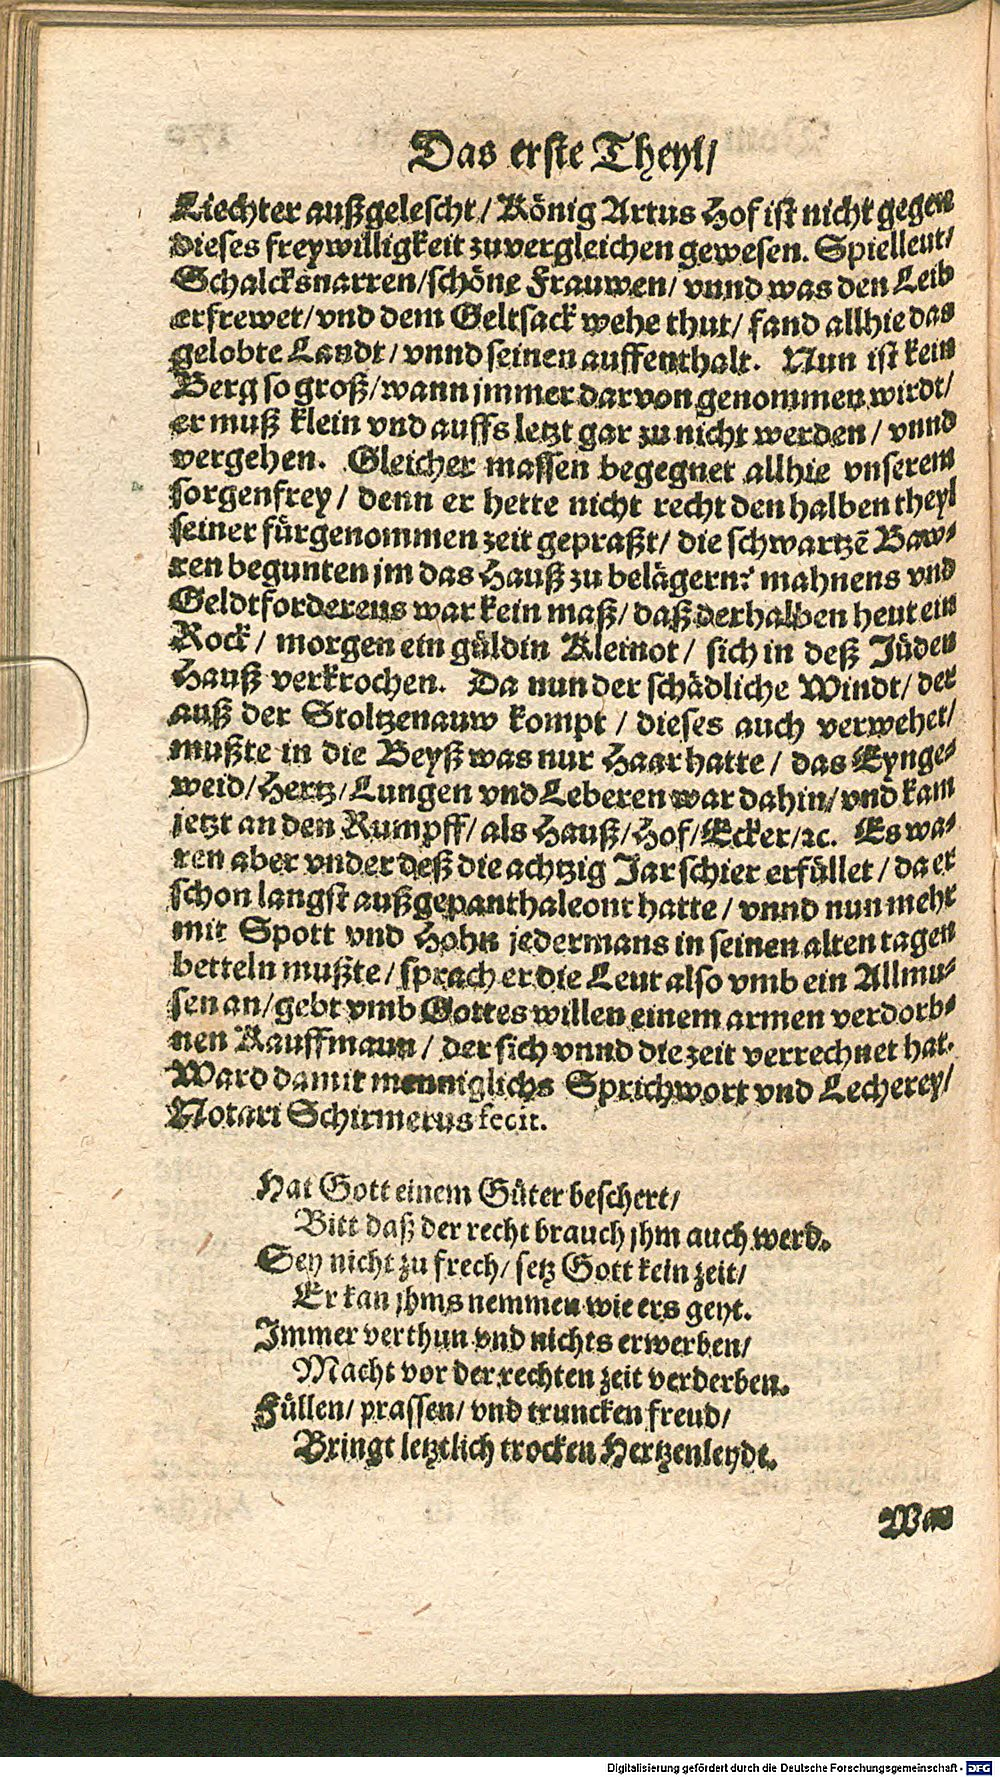 Das erste Theyl/
Liechter außgelescht / König Artus Hof ist nicht gegen
dieses freywilligkeit zuvergleichen gewesen. Spielleut/
Schalcksnarren/schöne Frauwen/ vnnd was den Leib
erfrewet/ vnd dem Geltsack wehe thut/ fand allhie das
gelobte Landt / vnnd seinen auffenthalt. Nun ist kein
Berg so groß/wann jmmer darvon genommen wirdt/
er muß klein vnd auffs letzt gar zu nicht werden / vnnd
vergehen. Gleicher massen begegnet allhie vnserem
sorgenfrey / denn er hette nicht recht den halben theyl
seiner fürgenommen zeit gepraßt/ die schwartzē Baw-
ren begunten jm das Hauß zu belägern: mahnens vnd
Geldtforderens war kein maß/ daß derhalben heut ein
Rock / morgen ein güldin Kleinot / sich in deß Jüden
Hauß verkrochen. Da nun der schädliche Windt/ der
auß der Stoltzenauw kompt / dieses auch verwehet/
mußte in die Beyß was nur Haar hatte / das Eynge-
weid/ Hertz/ Lungen vnd Leberen war dahin/ vnd kam
jetzt an den Rumpff/ als Hauß/ Hof/ Ecker/ ꝛc. Es wa-
ren aber vnder deß die achtzig Jar schier erfüllet / da er
schon langst außgepanthaleont hatte / vnnd nun mehr
mit Spott vnd Hohn jedermans in seinen alten tagen
betteln mußte / sprach er die Leut also vmb ein Allmu-
sen an/ gebt vmb Gottes willen einem armen verdorb-
nen Kauffmann / der sich vnnd die zeit verrechnet hat.
Ward damit menniglichs Sprichwort vnd Lecherey/
Notari Schirmerus fecit.
Hat Gott einem Güter beschert/
Bitt daß der recht brauch jhm auch werd.
Sey nicht zu frech/ setz Gott kein zeit/
Er kan jhms nemmen wie ers geyt.
Immer verthun vnd nichts erwerben/
Macht vor der rechten zeit verderben.
Füllen/ prassen/ vnd truncken freud/
Bringt letztlich trocken Hertzenleydt.
Digitalisierung gefördert durch die Deutsche Forschungsgemeinschaft - DFG